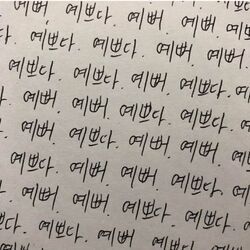 예뻐. 예쁘다. 예뻐. 예쁘다.
예쁘다. 예뻐. 예쁘다. 예뻐.
예뻐. 예쁘다. 예뻐. 예쁘다.
예쁘다. 예뻐. 예쁘다. 예뻐.
예쁘다. 예뻐. 예쁘다. 예뻐.
예뻐. 예쁘다. 예뻐. 예쁘다.
예뻐. 예쁘다. 예뻐. 예쁘다.
예쁘다. 예뻐. 예쁘다. 예뻐.